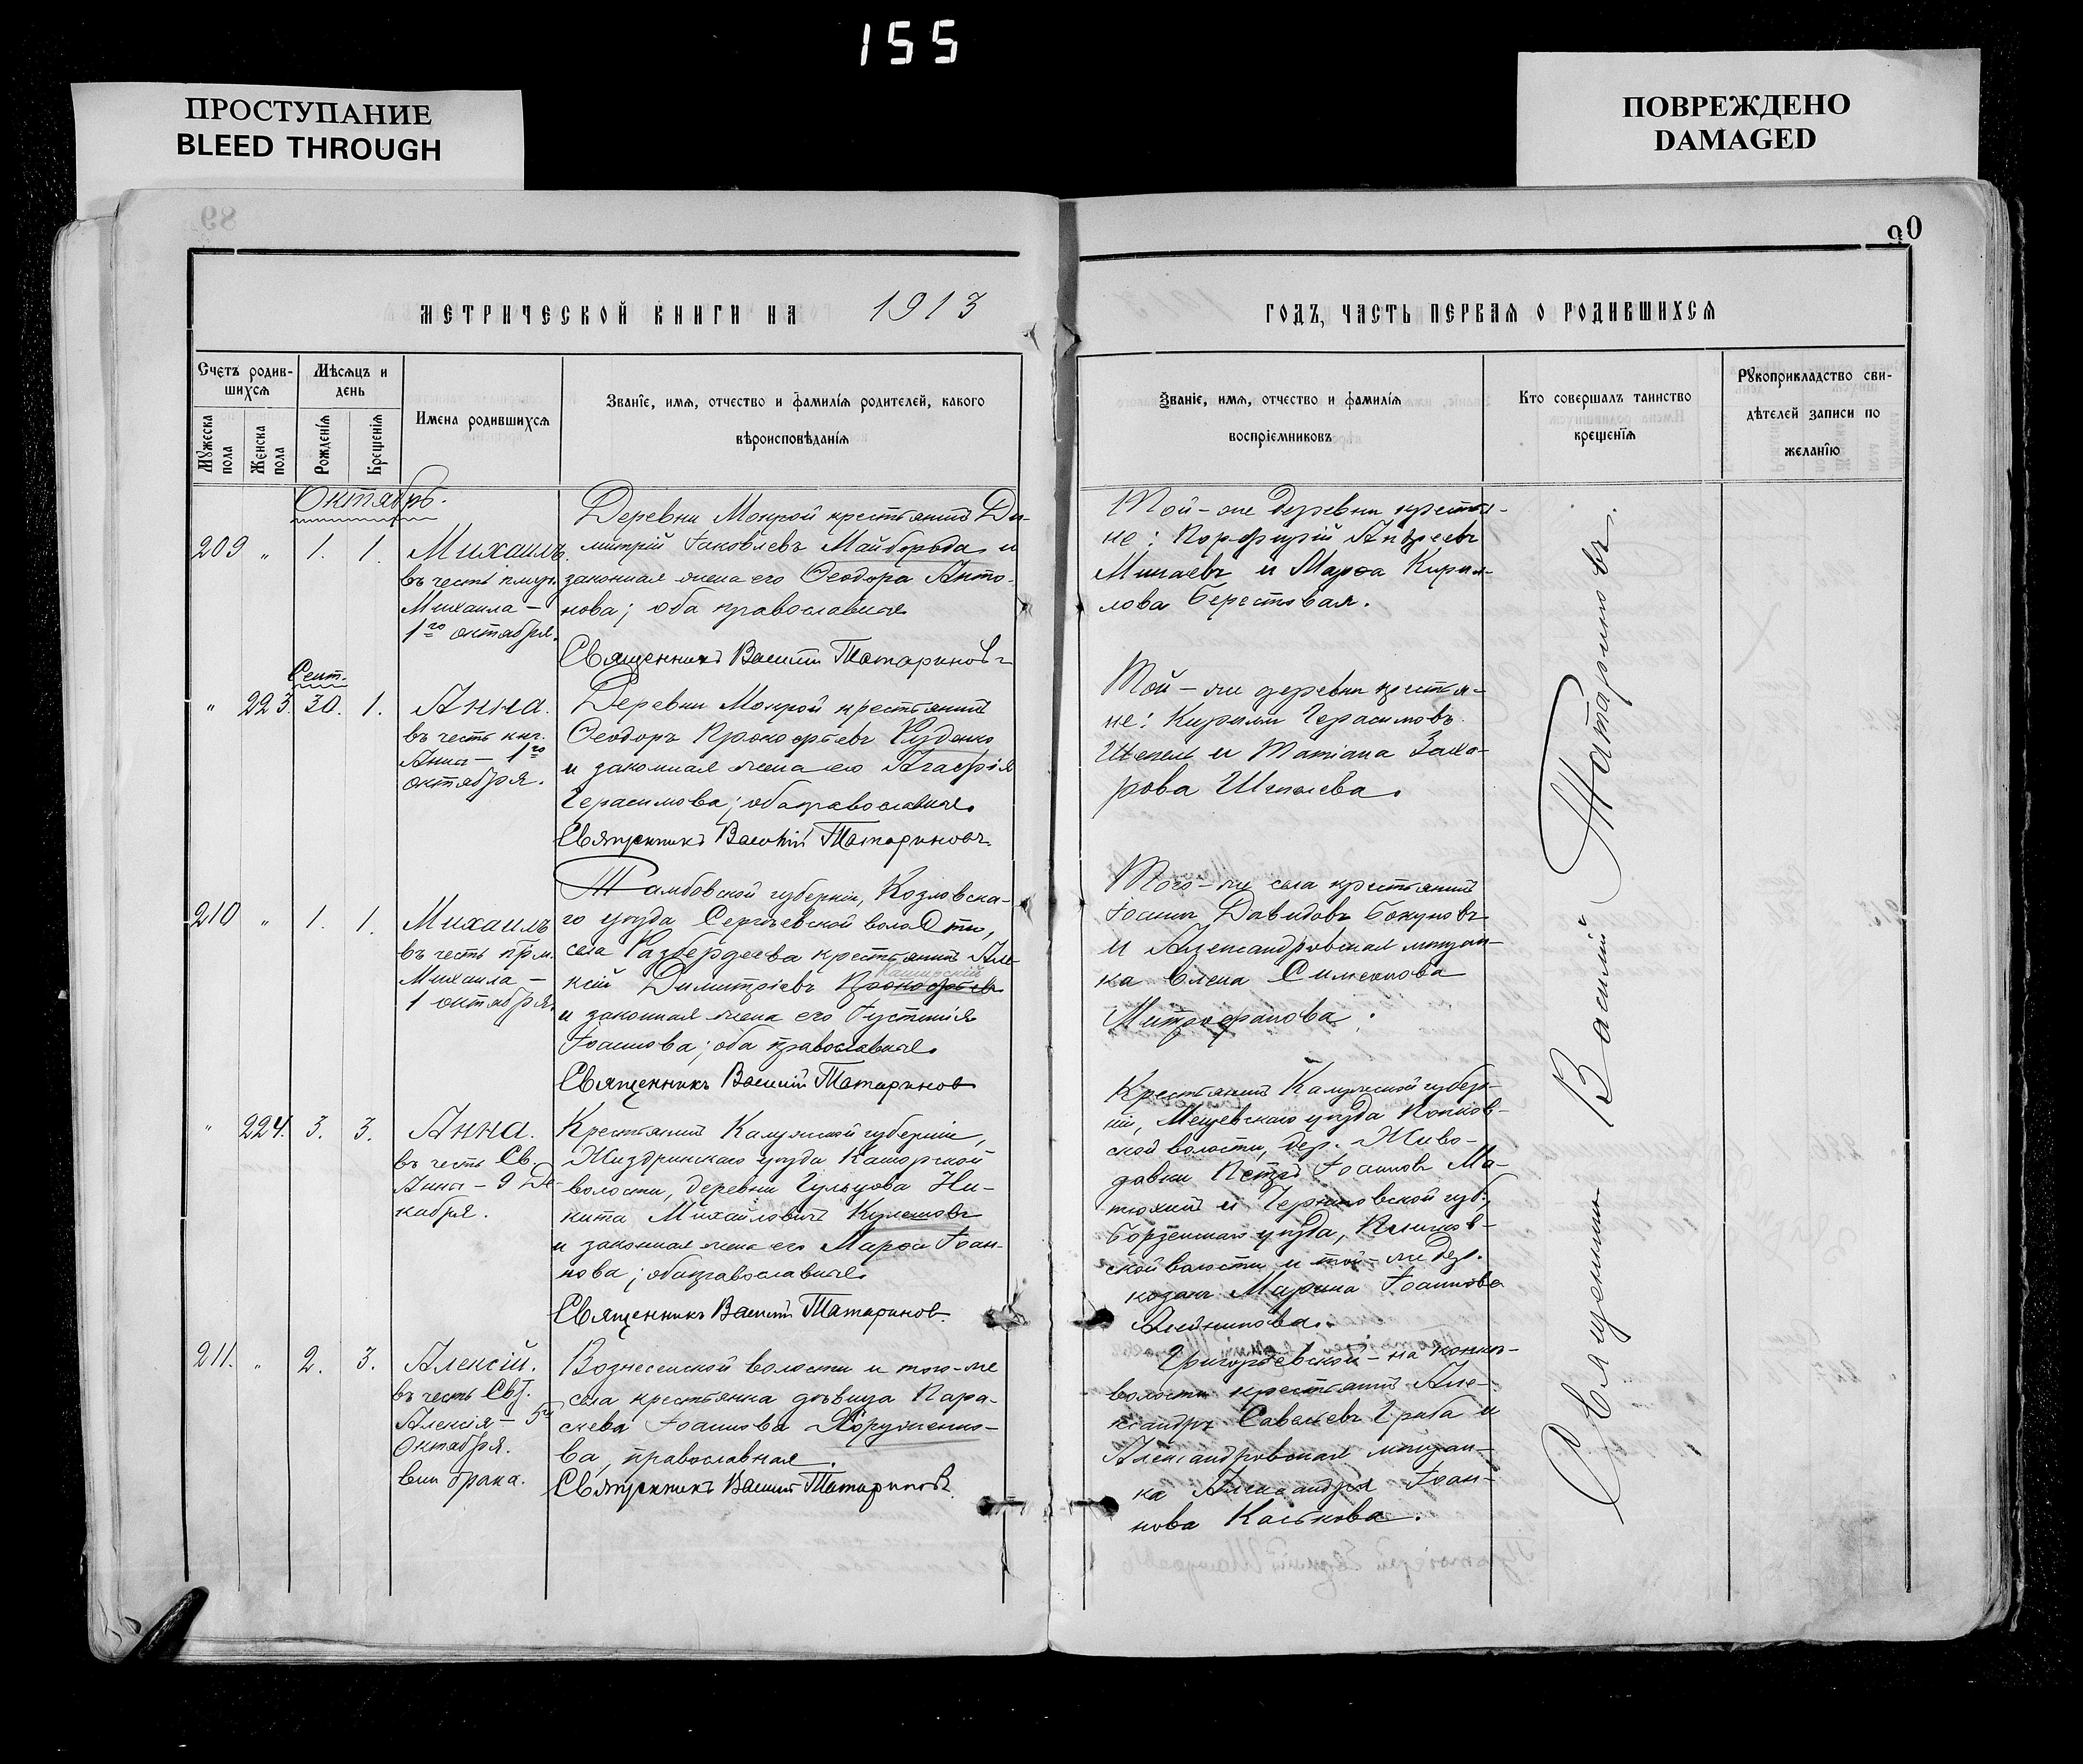 155
ПРОСТУПАНИЕ
BLEED THROUGH
ПОВРЕЖДЕНО
DAMAGED
89
90
МЕТРИЧЕСКОЙ КНИГИ НА 1913
ГОДЪ, ЧАСТЬ ПЕРВАЯ О РОДИВШИХСЯ
Счетъ родив-
шихся
Мѣсяцъ и
день
Мужеска
пола
Женска
пола
Рожденія
Крещенія
Имена родившихся
Званіе, имя, отчество и фамилія родителей, какого
вѣроисповѣданія
Званіе, имя, отчество и фамилія
воспріемниковъ
Кто совершалъ таинство
крещенія
Рукоприкладство сви-
дѣтелей записи по
желанію
Октябрь.
209 " 1. 1. Михаилъ
въ честь
Михаила —
1го октября.
Деревни Мокрой крестьянинъ Ди-
митрій Іаковлевъ Майборода и
законная жена его Ѳеодора Анто-
нова; оба православные
Священникъ Василій Татариновъ
Той-же деревни крестья-
не: Порфирій Андреевъ
Минаевъ и Марѳа Кирил-
лова Берестовая.
Сент.
" 223. 30. 1. Анна.
въ честь кнг.
Анны — 1го
октября.
Деревни Мокрой крестьянинъ
Ѳеодоръ Прокофьевъ Руденко
и законная жена его Агафія
Герасимова; оба православные.
Священникъ Василій Татариновъ.
Той-же деревни крестья-
не: Кириллъ Герасимовъ
Шепель и Татіана Заха-
рова
210 " 1. 1. Михаилъ
въ честь прм.
Михаила —
1 октября.
Тамбовской губерніи, Козловска-
го уѣзда Сергіевской волости,
села крестьянинъ Але-
ксій Димитріевъ Прокофьевъ
Каширскій
и законная жена его Іустинія
Іоаннова; оба православные.
Священникъ Василій Татаринов
Того-же села крестьянинъ
Іоаннъ Давидовъ Бокуновъ
и Александровская мѣщан-
ка Елена Симеонова
Митрофанова.
" 224. 3. 3. Анна.
въ честь Св.
Анны — 9 Де-
кабря.
Крестьянинъ Калужской губерніи,
Жиздринскаго уѣзда
волости, деревни Гульцова Ни-
кита Михайловичъ Кулешовъ
и законная жена его Марѳа Іоан-
нова; оба православные.
Священникъ Василій Татаринов.
Крестьянинъ Калужской губер-
ніи, Мещевскаго уѣзда
ской волости, дер. Живо-
давки Петръ Іоанновъ Ма-
тюхинъ и Черниговской губ.,
Борзенскаго уѣзда,
ской волости и той-же дер.
Марина Іоаннова
211. " 2. 3. Алексій.
въ честь Свт.
Алексія — 5го
Октября.
внѣ брака.
Вознесенской волости и того-же
села крестьянка дѣвица Пара-
скева Іоаннова Хоруженко-
ва, православная.
Священникъ Василій Татариновъ.
Григорьевской-на
волости крестьянинъ Але-
ксандръ Савельевъ Граба и
Александровская мѣщан-
ка Александра Іоан-
нова Касткова.
Священникъ Василій Татариновъ.